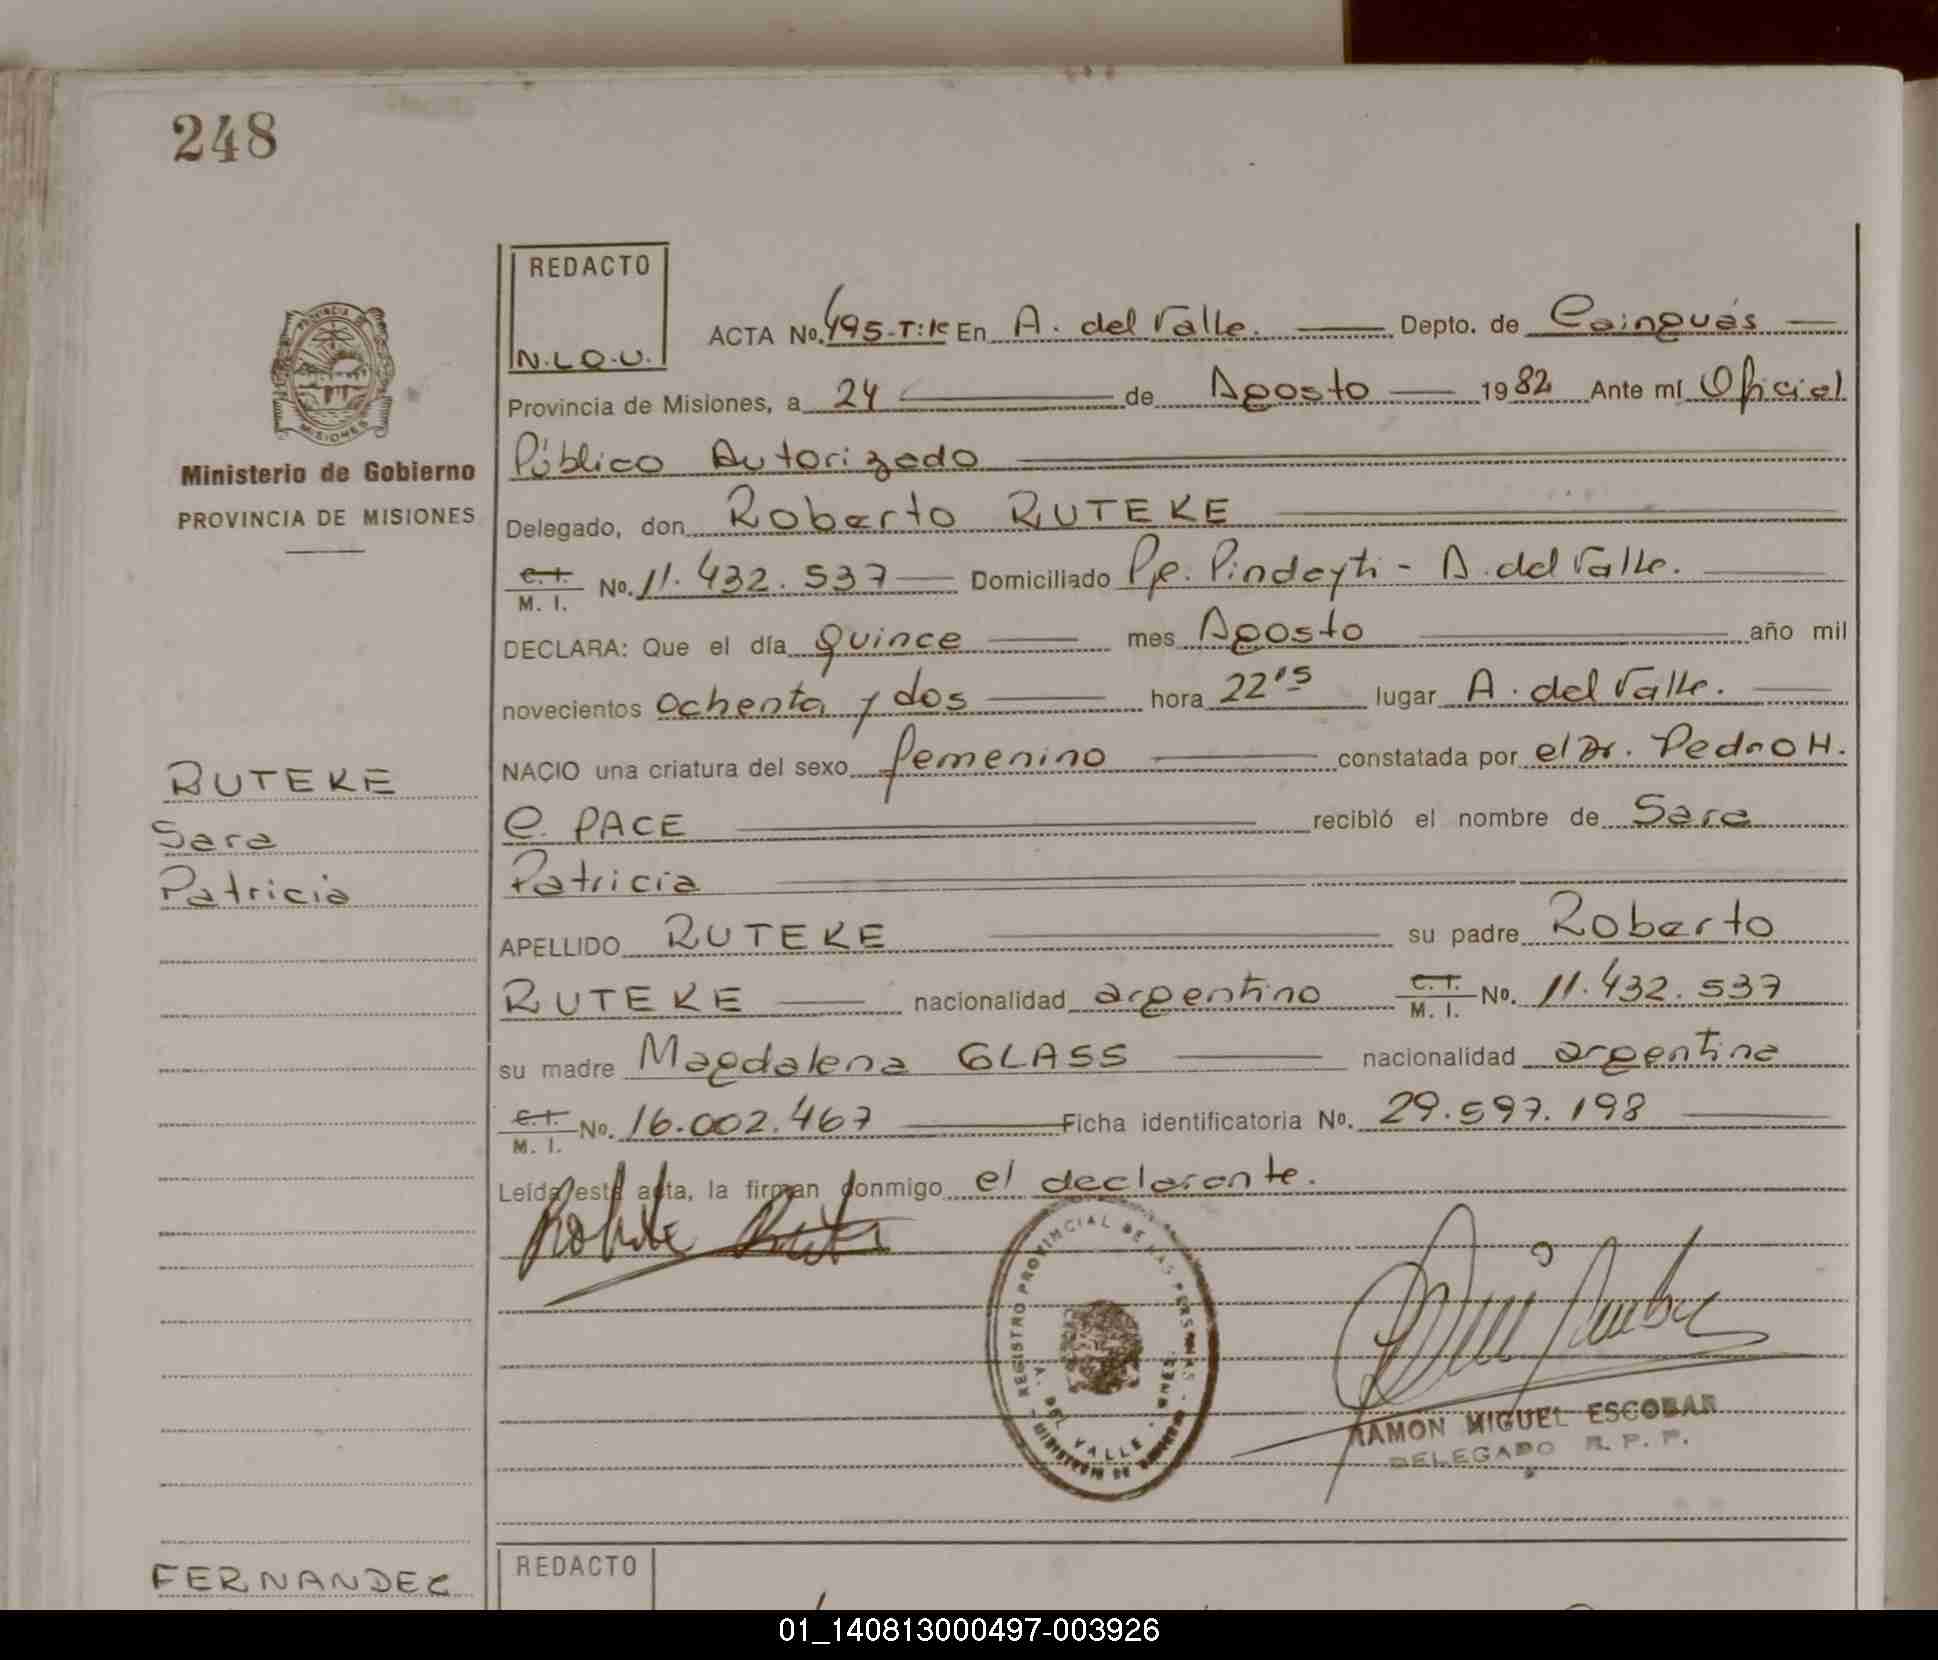 248
REDACTO
N.L.O.U.
ACTA No. 495-T:1c En A. del Valle. Depto. de Cainguás
Provincia de Misiones, a 24 de Agosto 1982 Ante mí Oficial
Público Autorizado
PROVINCIA DE
MISIONES
Ministerio de Gobierno
PROVINCIA DE MISIONES
Delegado, don Roberto RUTEKE
C.I.
M. I. No. 11.432.537 Domiciliado Pje. Pindayti - A. del Valle.
DECLARA: Que el día quince mes Agosto año mil
novecientos ochenta y dos hora 22'15 lugar A. del Valle.
NACIO una criatura del sexo femenino constatada por el Dr. Pedro H.
C. PACE recibió el nombre de Sara
Patricia
RUTEKE
Sara
Patricia
APELLIDO RUTEKE su padre Roberto
RUTEKE nacionalidad argentino C.I.
M. I. No. 11.432.537
su madre Magdalena GLASS nacionalidad argentina
C.I.
M. I. No. 16.002.467 Ficha identificatoria No. 29.597.198
Leída esta acta, la firman conmigo el declarante.
REGISTRO PROVINCIAL DE LAS PERSONAS
A. DEL VALLE
RAMON MIGUEL ESCOBAR
DELEGADO R. P. P.
FERNANDEZ
REDACTO
01_140813000497-003926